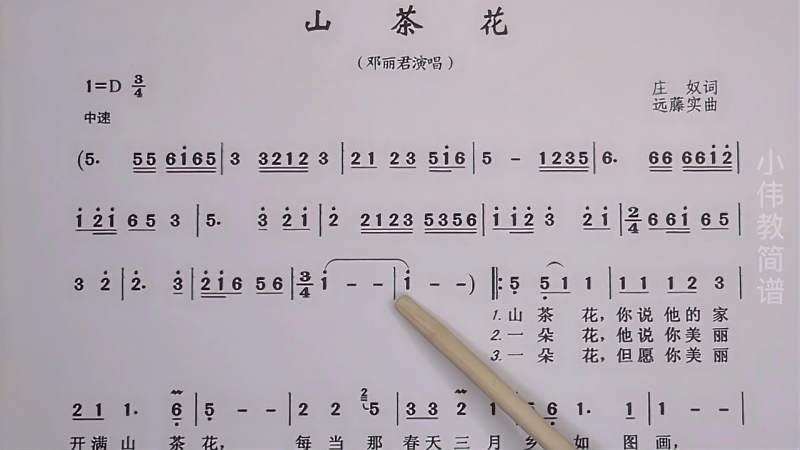 山茶花
（邓丽君演唱）
1=D 3/4
庄奴词
远藤实曲
中速
(5. 55 6i65 | 3 3212 3 | 21 23 5i6 | 5 - 1235 | 6. 66 66i2 |
i 2i 65 3 | 5. 3 2i | 2 2123 5356 | i i2 3 2i | 2/4 66i 65 |
3 2 | 2. 3 | 2i6 56 | 3/4 i - - | i - -) ‖: 5 51 1 | 11 12 3 |
1. 山茶花，你说他的家
2. 一朵花，他说你美丽
3. 一朵花，但愿你美丽
21 1. 6 | 5 - - | 2 2 5 | 33 2 1
开满山茶花，每当那春天三月 如图画，
小伟教简谱